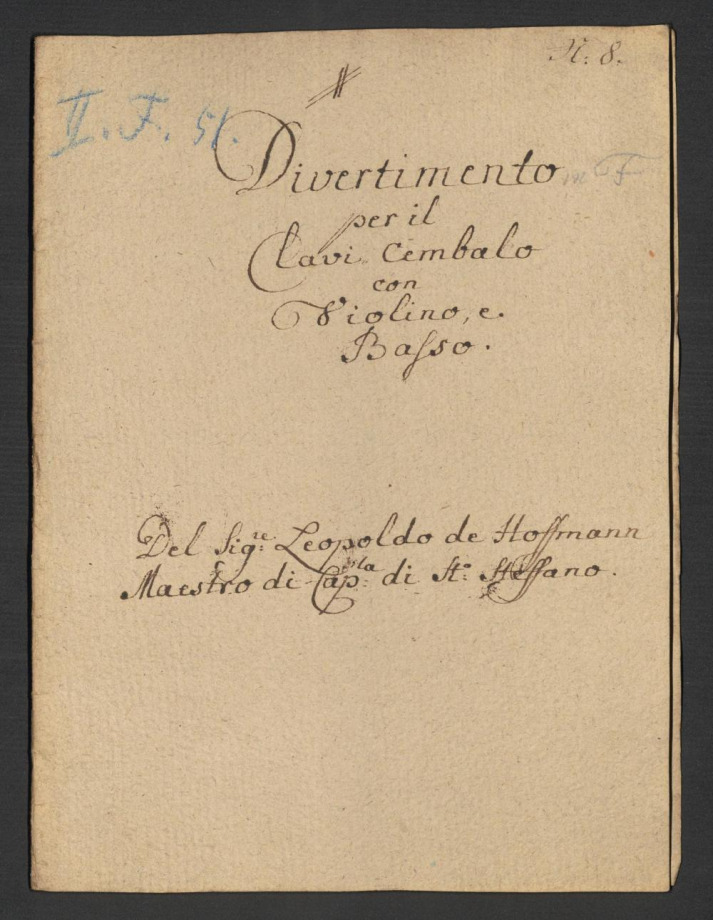 N: 8.
II. F. 51.
Divertimento in F
per il
Clavi Cembalo
con
Violino, e.
Baſso.
Del Sig:re Leopoldo de Hoffmann
Maestro di Cap:lla di St: Steffano.